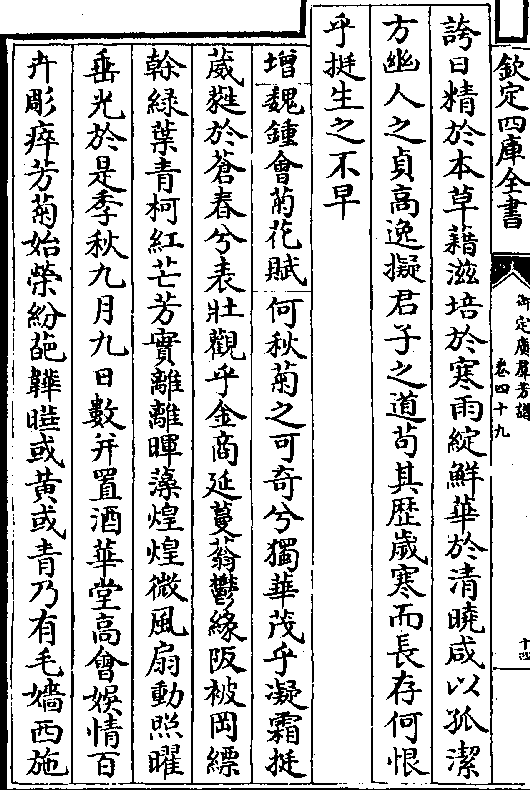 欽定四庫全書
御定廣羣芳譜
卷四十九
十四
誇日精於本草藉滋培於寒雨綻鮮華於清曉咸以孤潔
方幽人之貞高逸擬君子之道苟其歴歲寒而長存何恨
乎挺生之不早
增魏鍾會菊花賦何秋菊之可奇兮獨華茂乎凝霜挺
葳蕤於蒼春兮表壯觀乎金商延蔓蓊鬱緣阪被岡縹
榦緑葉青柯紅芒芳實離離暉藻煌煌微風扇動照曜
垂光於是季秋九月九日數并置酒華堂高會娱情百
卉彫瘁芳菊始榮紛葩韡曄或黃或青乃有毛嬙西施